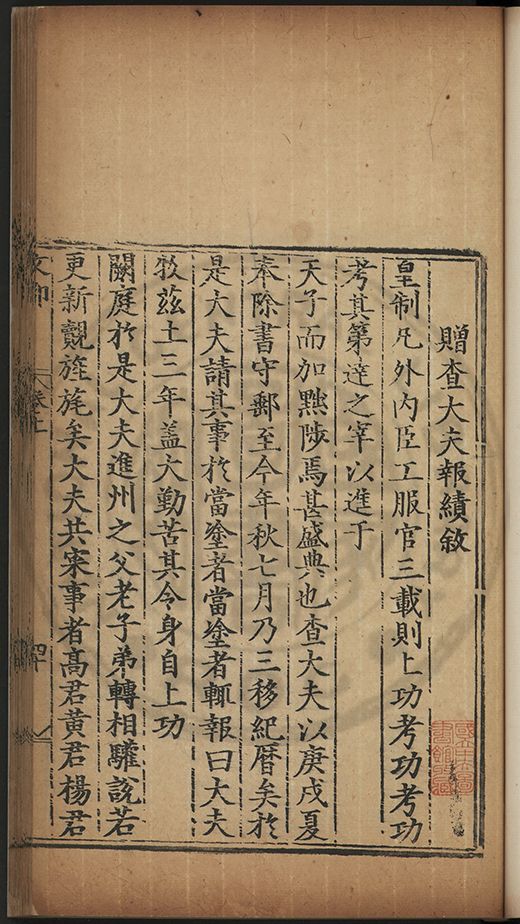 贈查大夫報績敘
皇制凡外內臣工服官三載則上功考功考功
考其第達之宰以進于
天子而加黜陟焉甚盛典也查大夫以庚戌夏
奉除書守鄖至今年秋七月乃三移紀曆矣於
是大夫請其事於當塗者當塗者輒報曰大夫
牧茲土三年盖大勤苦其令身自上功
闕庭於是大夫進州之父老子弟轉相驩說若
更新覩旌旄矣大夫共寀事者高君黃君楊君
卷上